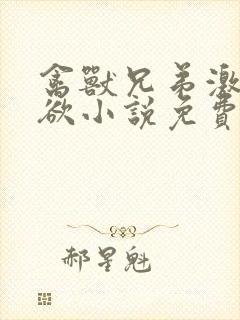 禽獸兄弟激
欲小說免費
郝星魁